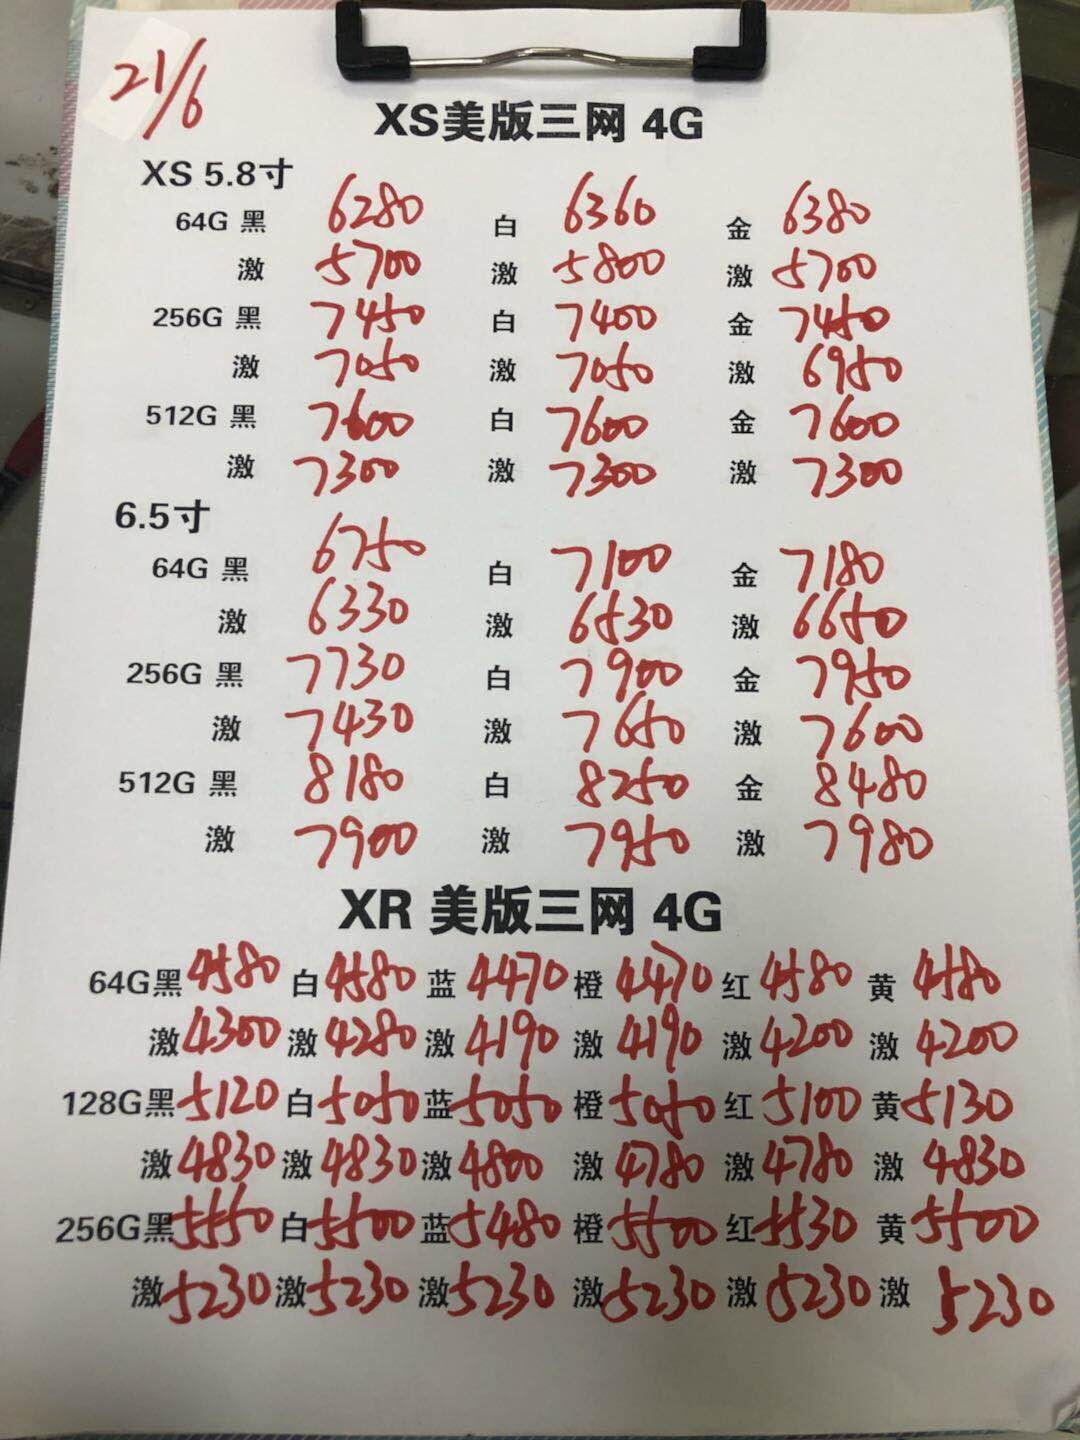 21/6
XS美版三网 4G
XS 5.8寸
64G 黑 6280 白 6360 金 6380
激 5700 激 5800 激 5700
256G 黑 7450 白 7400 金 7450
激 7050 激 7050 激 6950
512G 黑 7600 白 7600 金 7600
激 7300 激 7300 激 7300
6.5寸
64G 黑 6750 白 7100 金 7180
激 6330 激 6530 激 6650
256G 黑 7730 白 7900 金 7950
激 7430 激 7650 激 7600
512G 黑 8180 白 8250 金 8480
激 7900 激 7950 激 7980
XR 美版三网 4G
64G黑 4580 白 4580 蓝 4470 橙 4470 红 4580 黄 4580
激 4300 激 4280 激 4190 激 4190 激 4200 激 4200
128G黑 5120 白 5050 蓝 5050 橙 5050 红 5100 黄 5130
激 4830 激 4830 激 4800 激 4780 激 4780 激 4830
256G黑 5550 白 5500 蓝 5480 橙 5500 红 5530 黄 5500
激 5230 激 5230 激 5230 激 5230 激 5230 激 5230